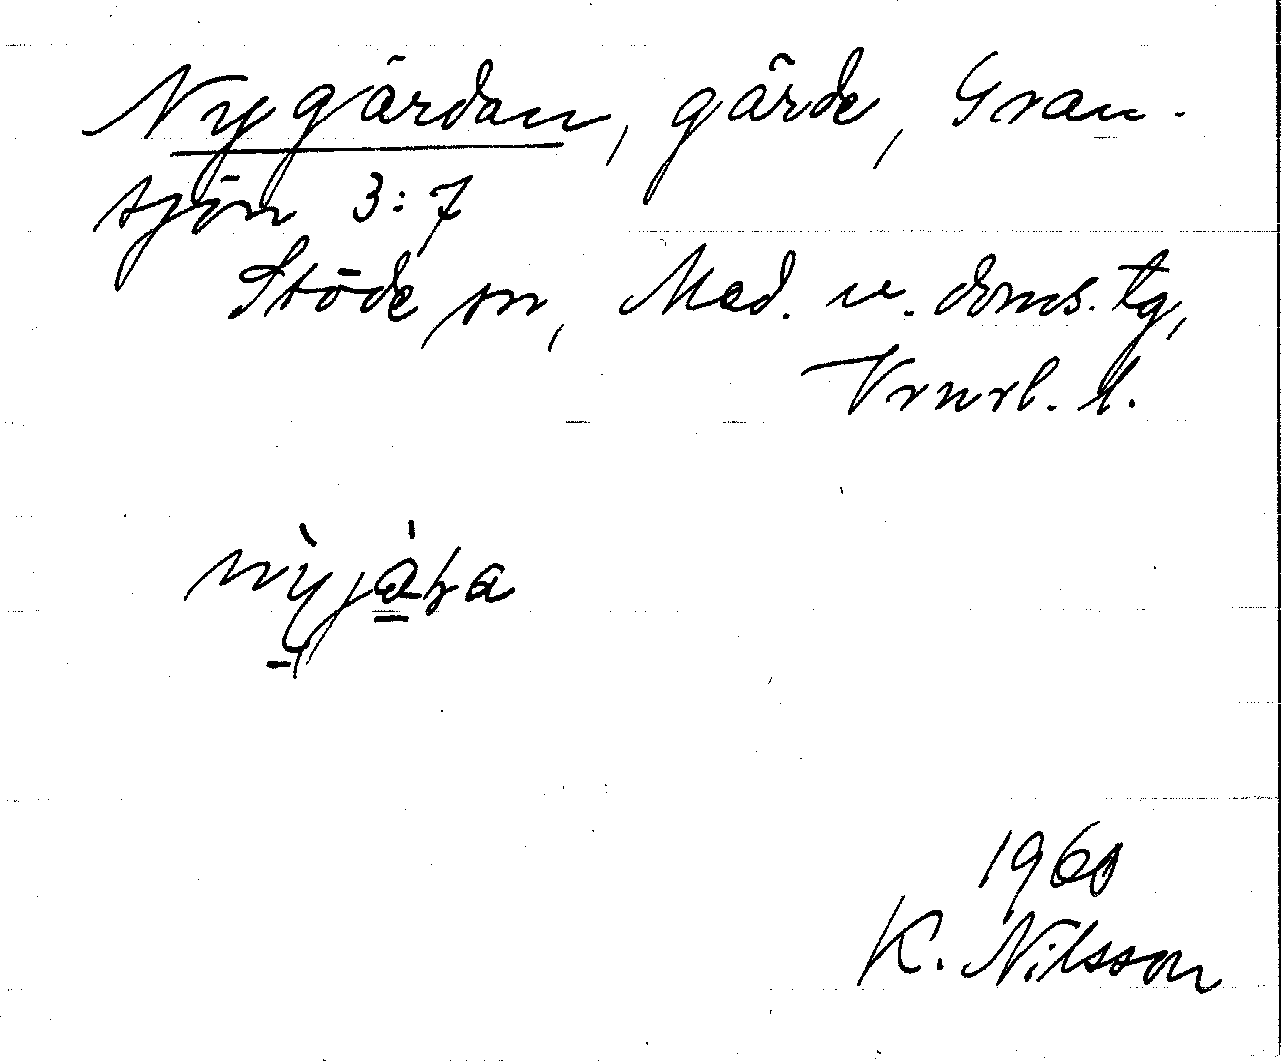 Nygärdan, gärde, Gran-
sjön 3:7
Stöde sn, Med. v. doms. tg,
Vrnrl. l.
nỳjàra
1960
K. Nilsson